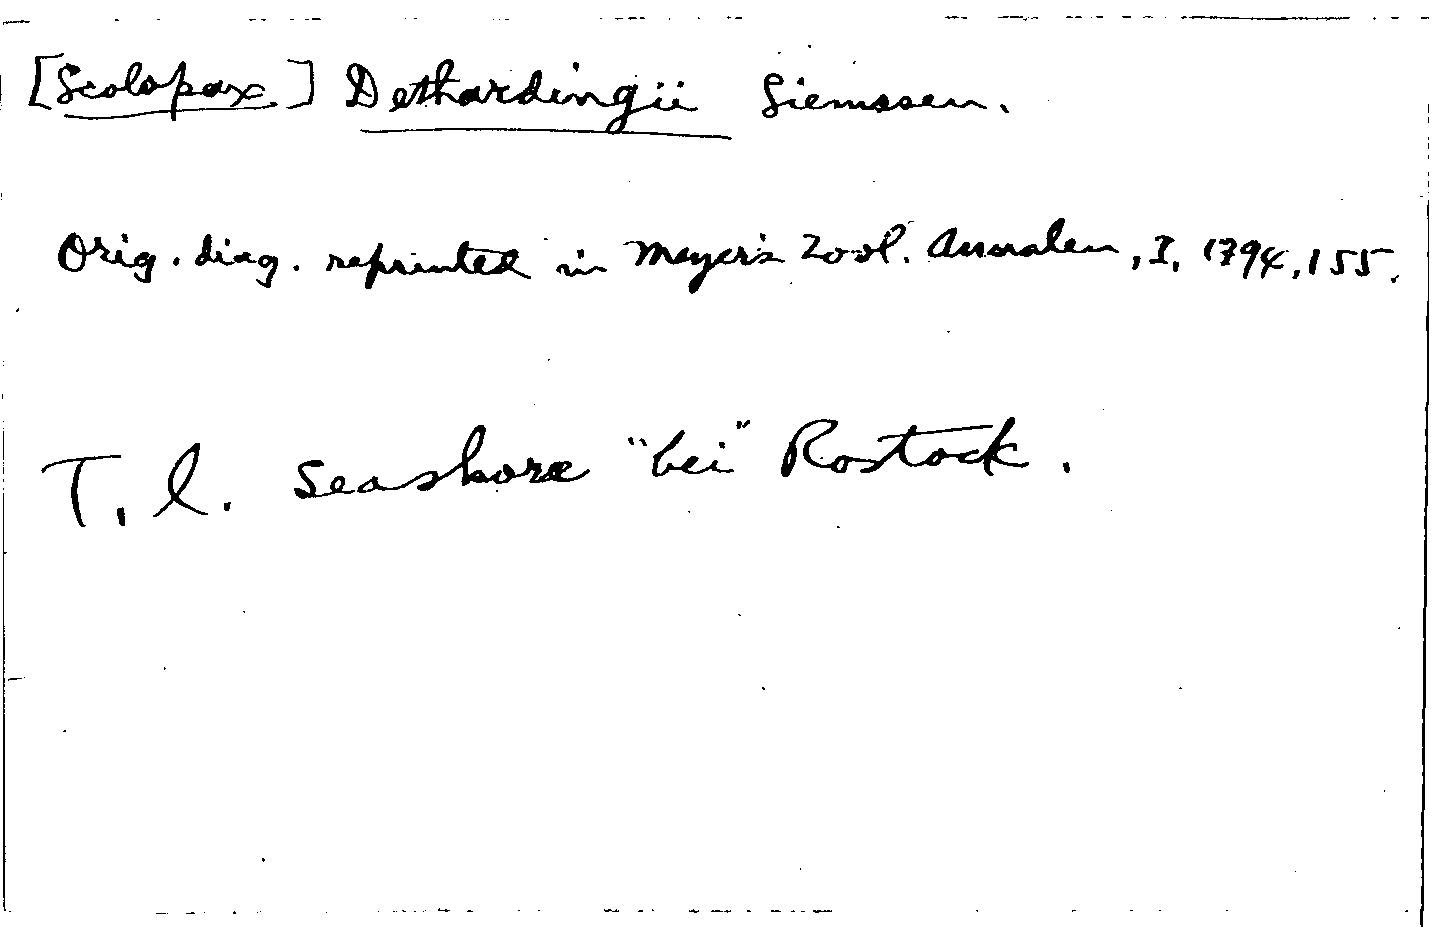 [Scolopax.] Dethardingii Siemssen.
Orig. diag. reprinted in Meyer's Zool. Annalen, I, 1794, 155.
T. l. seashore "bei" Rostock.